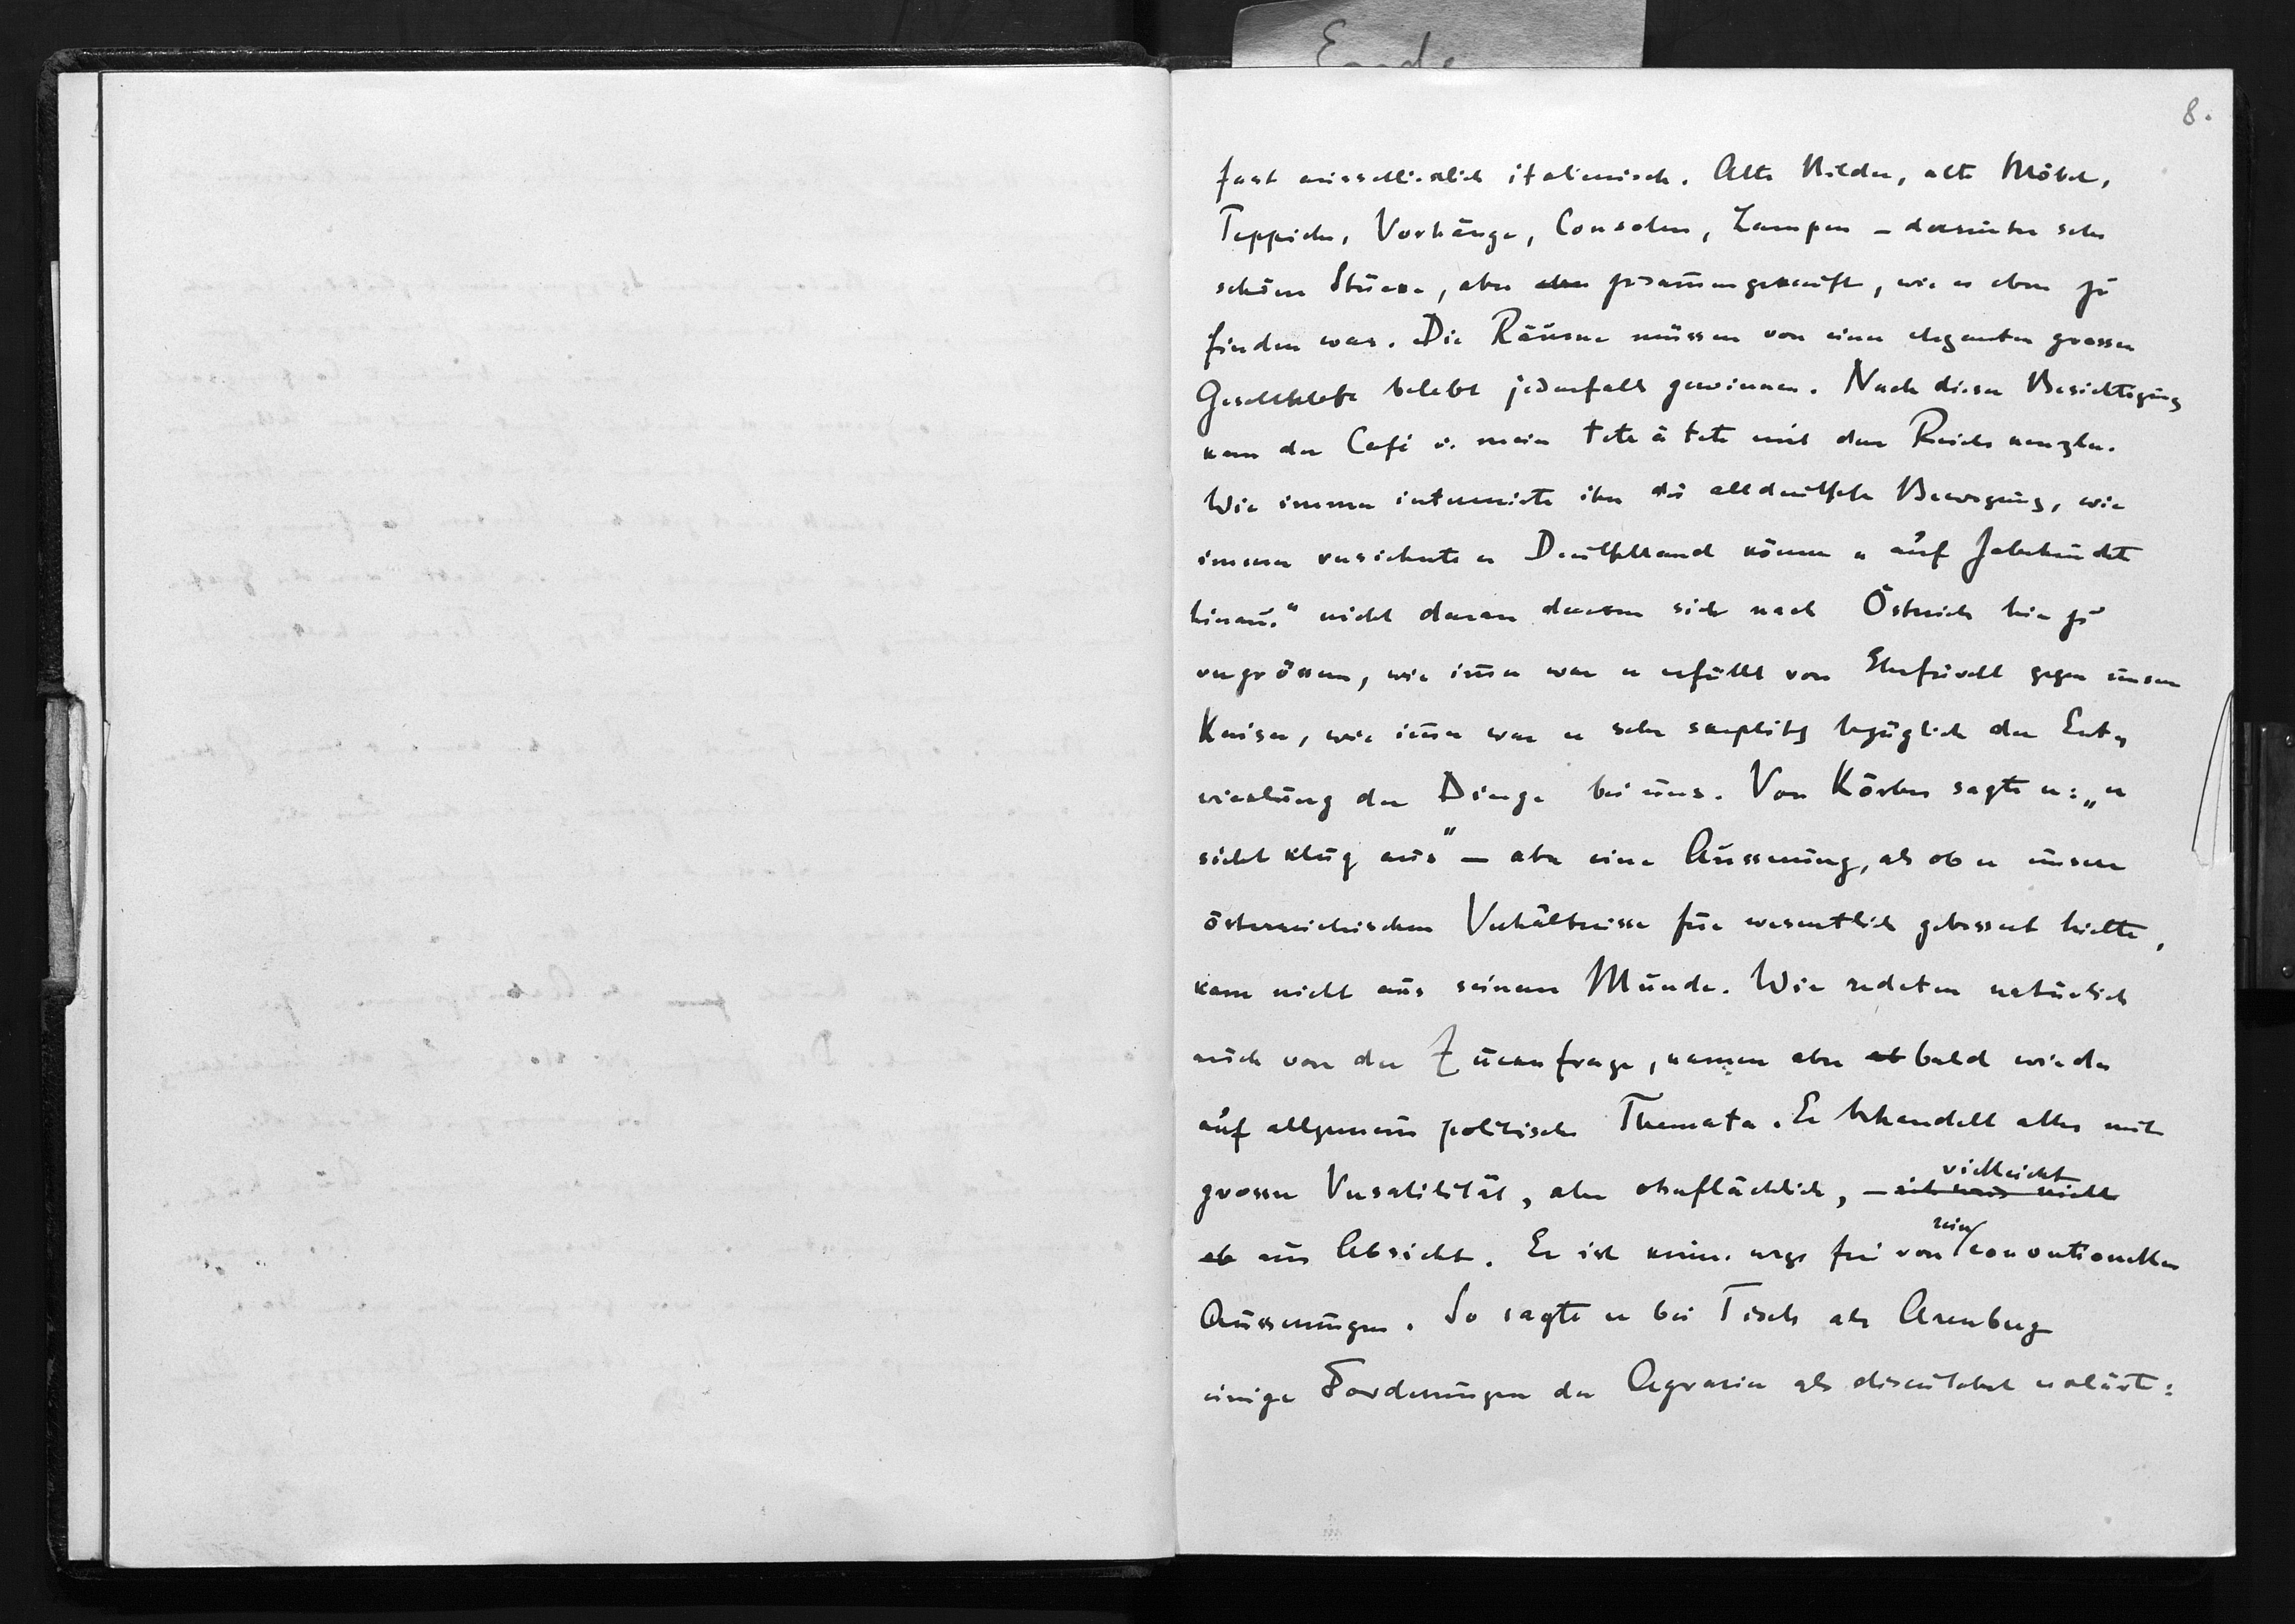 8.
fast ausschliesslich italienisch. Alte Bilder, alte Möbel,
Teppiche, Vorhänge, Consolen, Lampen – darunter sehr
schöne Stücke, aber aber zusammengekauft, wie es eben zu
finden war. Die Räume müssen von einer eleganten grossen
Gesellschaft belebt jedenfalls gewinnen. Nach dieser Besichtigung
kam der Café u. mein tete à tete mit dem Reichskanzler.
Wie immer interessirte ihn die alldeutsche Bewegung, wie
immer versicherte er Deutschland könne „auf Jahrhunderte
hinaus“ nicht daran denken sich nach Östreich hin zu
vergrössern, wie im̄er war er erfüllt von Ehrfurcht gegen unsern
Kaiser, wie im̄er war er sehr skeptisch bezüglich der Ent-
wicklung der Dinge bei uns. Von Körber sagte er: „er
sieht klug aus“ – aber eine Äusserung, als ob er unsere
österreichischen Verhältnisse für wesentlich gebessert hielte,
kam nicht aus seinem Munde. Wir redeten natürlich
auch von der Zuckerfrage, kamen aber bald wieder
auf allgemein politische Themata. Er behandelt alles mit
grosser Versatilität, aber oberflächlich, – vielleicht
ich weis nicht
ob aus Absicht. Er ist keineswegs frei von rein conventionellen
Äusserungen. So sagte er bei Tisch als Arenberg
einige Forderungen der Agrarier als discutabel erklärte: